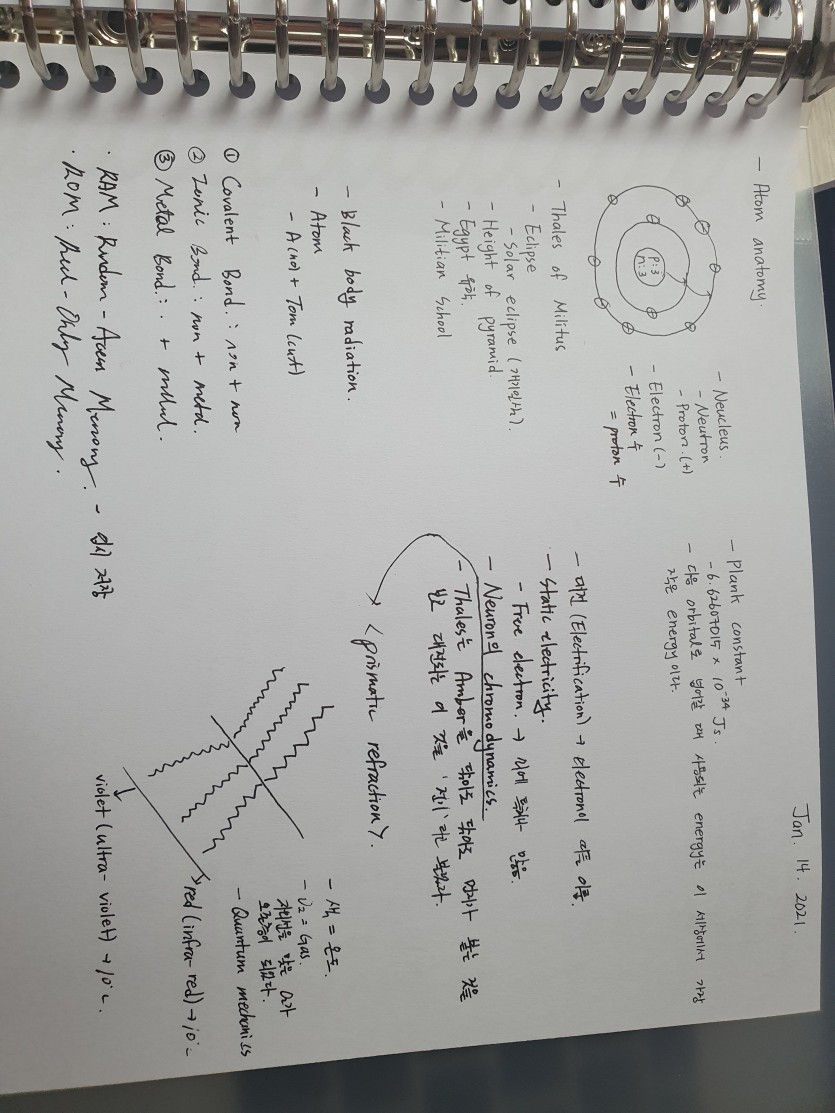 Jan. 14. 2021.
- Atom anatomy.
P:3
n:3
- Neucleus.
- Neutron
- Proton.(+)
- Electron(-)
- Electron 수
= proton 수
- Thales of Militus
- Eclipse
- Solar eclipse (개기일식).
- Height of pyramid.
- Egypt 유학.
- Militian School
- Black body radiation.
- Atom
- A(no) + Tom(cut)
① Covalent Bond. : non + non
② Ionic Bond. : non + metal.
③ Metal Bond. : · + metal.
· RAM : Random - Access Memory. - 임시 저장
· ROM : Read - Only Memory.
- Plank constant
- 6.62607015 × 10-34 Js.
- 다음 orbital로 넘어갈 때 사용되는 energy는 이 세상에서 가장
작은 energy이다.
- 대전 (Electrification) → electron이 이동.
- Static electricity.
- Free electron. →
- Neuron의 chromodynamics.
- Thales는 Amber을 닦아도 닦아도 먼지가 붙는 것을
보고 대전되는 이 것을 '전기'라고 불렀다.
<prismatic refraction>.
- 색 = 온도.
- = Gas.
맞은 가
오존층이 되었다.
- Quantum mechanics
red (infra-red) → 10℃
violet (ultra-violet) → 10℃.